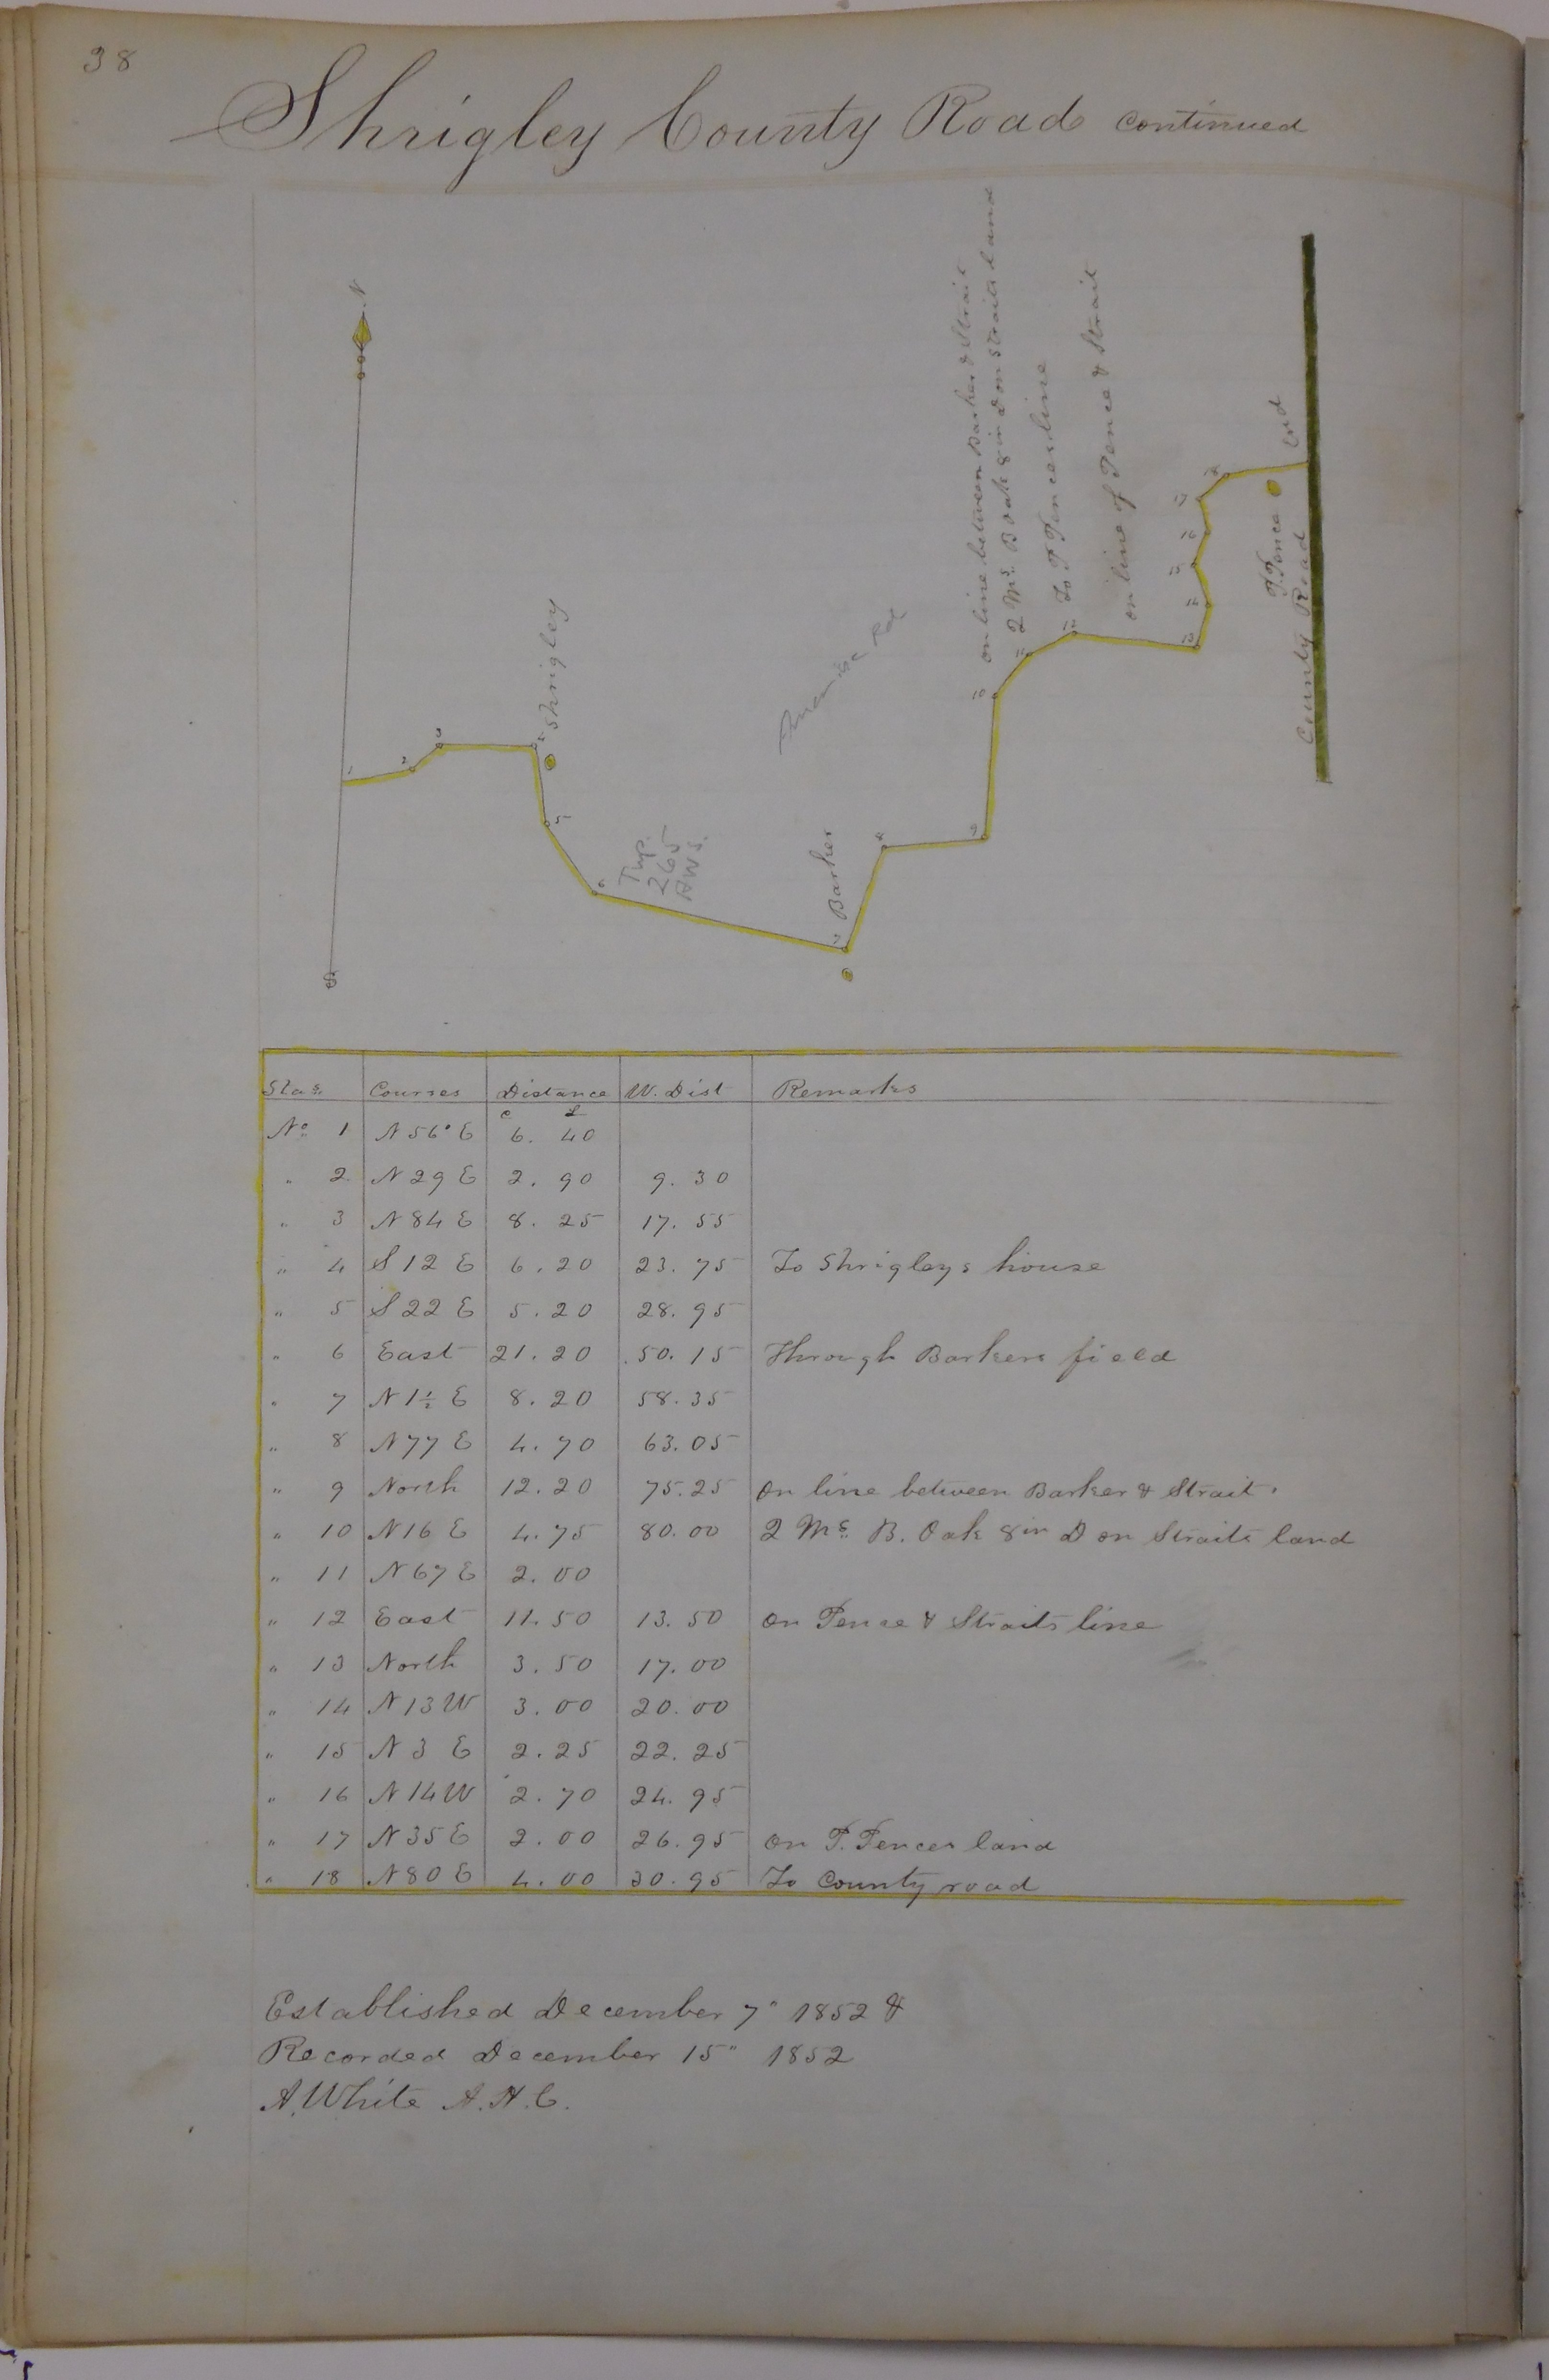 38
Shrigley County Road continued
N
on line between Barker & Strait
2 Ms. B oak 8 in D on Straits land
To T Pences line
on line of Pence & Strait
End
T. Pence
County Road
Shrigley
Twp.
265
Barker
1
2
3
4
5
6
7
8
9
10
11
12
13
14
15
16
17
18
S
Stas. Courses Distance W. Dist Remarks
C L
No. 1 N 56° E 6. 40
" 2 N 29 E 2. 90 9. 30
" 3 N 84 E 8. 25 17. 55
" 4 S 12 E 6. 20 23. 75 To Shrigleys house
" 5 S 22 E 5. 20 28. 95
" 6 East 21. 20 50. 15 Through Barkers field
" 7 N 1½ E 8. 20 58. 35
" 8 N 77 E 4. 70 63. 05
" 9 North 12. 20 75. 25 on line between Barker & Strait.
" 10 N 16 E 4. 75 80. 00 2 Ms. B. Oak 8 in D on Straits land
" 11 N 67 E 2. 00
" 12 East 11. 50 13. 50 on Pence & Straits line
" 13 North 3. 50 17. 00
" 14 N 13 W 3. 00 20. 00
" 15 N 3 E 2. 25 22. 25
" 16 N 14 W 2. 70 24. 95
" 17 N 35 E 2. 00 26. 95 on T. Pences land
" 18 N 80 E 4. 00 30. 95 To County road
Established December 7" 1852 &
Recorded December 15" 1852
A. White A. A. C.